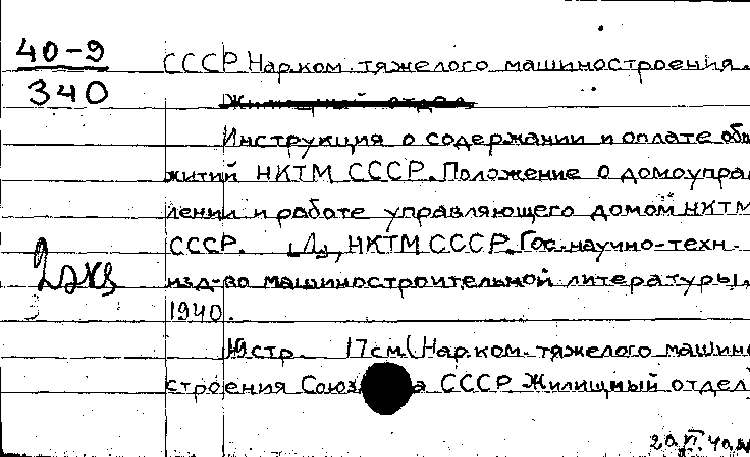 40-9
340
СССР Нар.ком. тяжелого машиностроения.
Жилищный отдел
Инструкция о содержании и оплате общ
житий НКТМ СССР. Положение о домоупра
лении и работе управляющего домом НКТМ
СССР. [Л], НКТМ СССР. Гос. научно-техн.
2 экз
изд-во машиностроительной литературы,
1940.
стр. 17 см. (Нар.ком. тяжелого машино
строения Союза СССР Жилищный отдел)